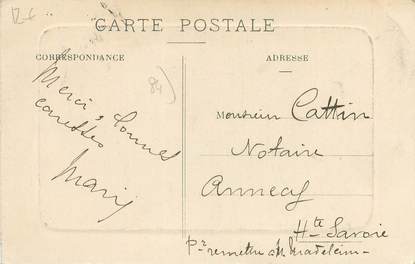 12-6
CARTE POSTALE
CORRESPONDANCE
ADRESSE
84
Merci, bonnes
caresses
Marie
Monsieur Cattin
Notaire
Annecy
Hte Savoie
Pr remettre à Madeleine